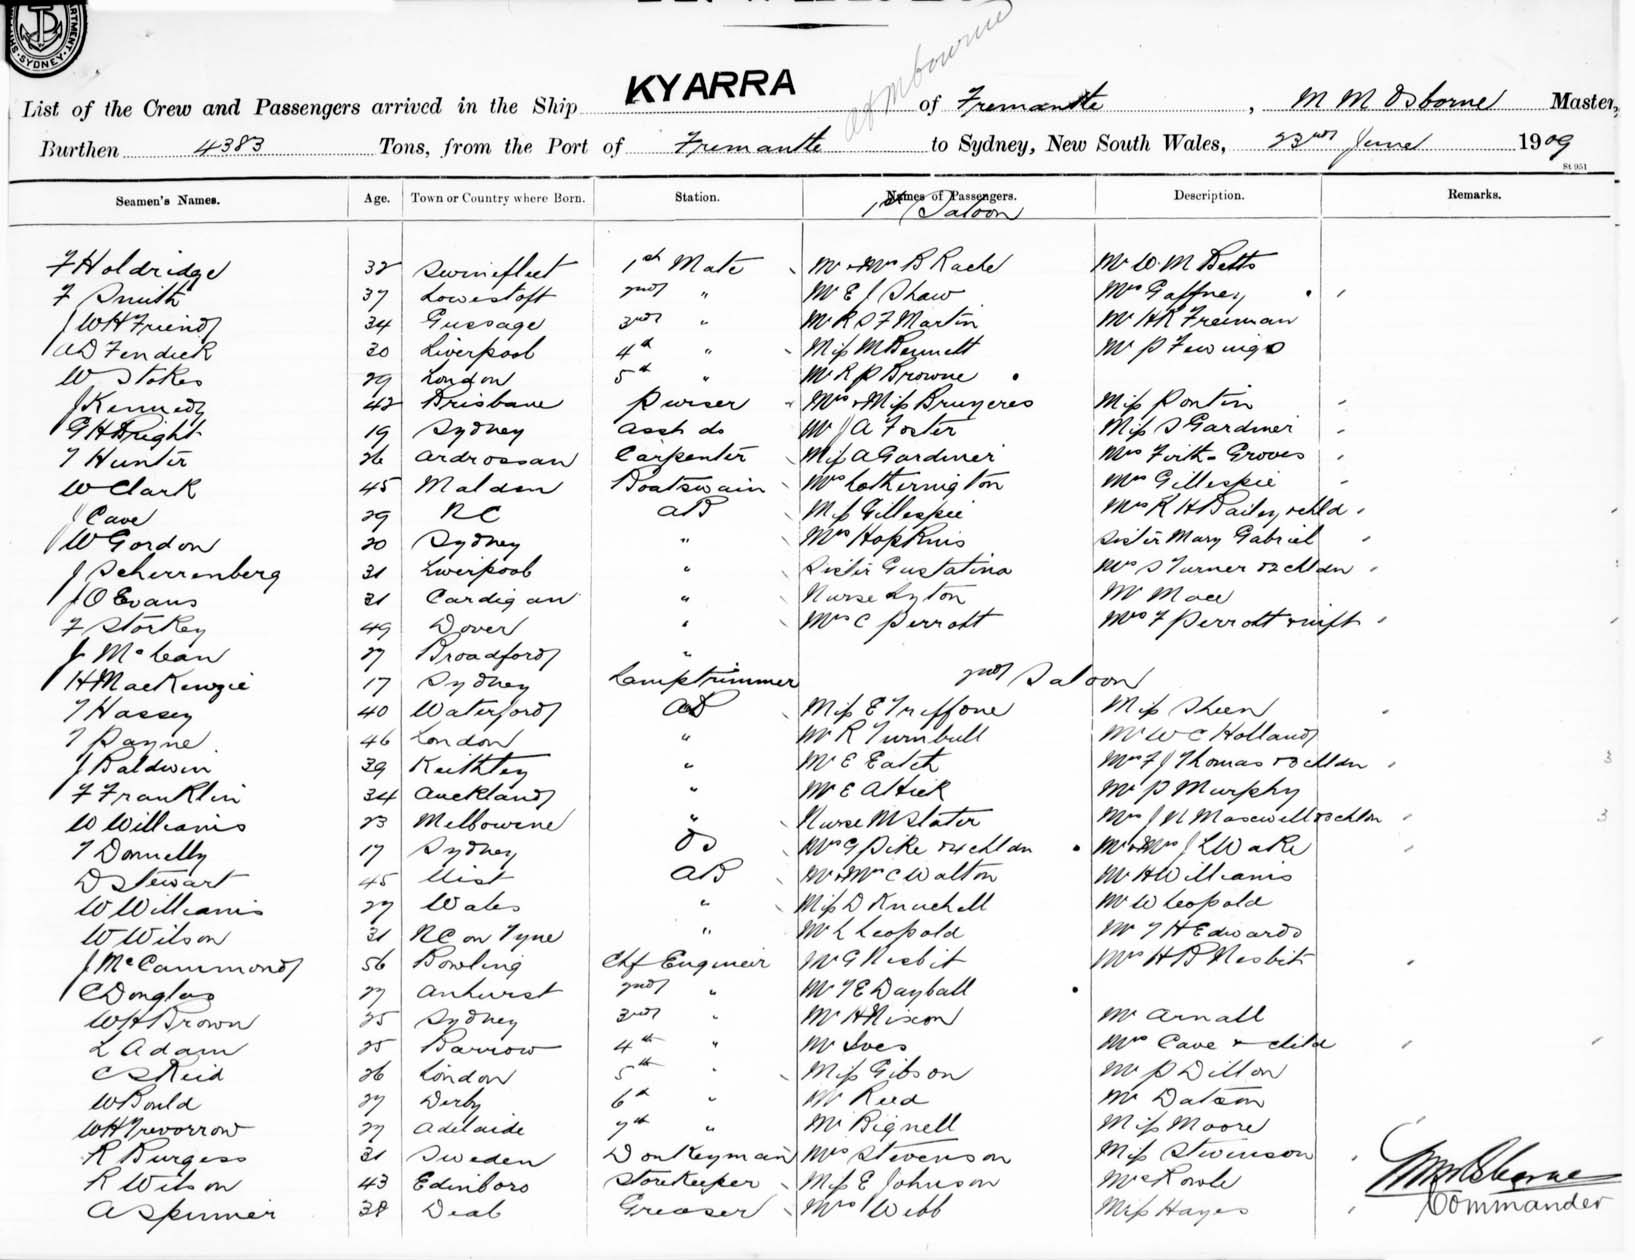 SYDNEY
at Melbourne
List of the Crew and Passengers arrived in the Ship KYARRA of Fremantle, M M Osborne Master,
Burthen 4383 Tons, from the Port of Fremantle to Sydney, New South Wales, 23rd June 1909
St 951
Seamen's Names. Age. Town or Country where Born. Station. Names of Passengers. Description. Remarks.
1st Saloon
F Holdridge 32 Swinefleet 1st Mate Mr & Mrs B Rache Mr W M Betts
F Smith 37 Lowestoft 2nd " Mr E J Shaw Mrs Gaffney
J WH Friend 34 Gussage 3rd " Mr R S F Martin Mr HR Freeman
A D Fendick 30 Liverpool 4th " Miss M Bennett Mr P Fewings
W Stokes 29 London 5th " Mr R P Browne
J Kennedy 42 Brisbane Purser Mrs & Miss Bruyeres Miss Pontin
G H Bright 19 Sydney Asst do Mr J A Foster Miss S Gardiner
T Hunter 26 Ardrossan Carpenter Miss A Gardiner Mrs Firth-Groves
W Clark 45 Maldon Boatswain Mrs Cotherington Mrs Gillespie
J Cave 29 NC AB Miss Gillespie Mrs R H Bailey & chld
W Gordon 20 Sydney " Mrs Hopkins Sister Mary Gabriel
J Scherrenberg 31 Liverpool " Sister Gustatina Mrs S Turner & 2 chldn
J O Evans 31 Cardigan " Nurse Lyton Mr Mace
F Storkey 49 Dover " Mrs C Perrott Mrs F Perrott & inft
J McLean 27 Broadford "
H MacKenzie 17 Sydney Lamptrimmer 2nd Saloon
T Hassey 40 Waterford AB Miss E Triffone Miss Sheen
T Payne 46 London " Mr R Turnbull Mr W C Holland
J Baldwin 39 Keithley " Mr E Eatch Mrs F J Thomas & 3 chldn 3
F Franklin 34 Auckland " Mr E A Hick Mr P Murphy
W Williams 23 Melbourne " Nurse M Slater Mrs J N Maxwell & 3 chldn 3
T Donnelly 17 Sydney OS Mrs G Pike & 4 chldn Mr & Mrs J L Wake
D Stewart 45 Uist AB Mr & Mrs C Walton Mr H Williams
W Williams 27 Wales " Miss D Knuchell Mr W Leopold
W Wilson 31 NC on Tyne " Mr L Leopold Mr T H Edwards
J McCammond 56 Bowling Chf Engineer Mr G Nesbit Mrs H B Nesbit
C Douglas 27 Anhurst 2nd " Mr T E Dayball
WH Brown 25 Sydney 3rd " Mr H Nixon Mr Arnall
L Adam 25 Barrow 4th " Mr Ives Mrs Cave & child
C S Reid 26 London 5th " Miss Gibson Mr P Dillon
W Bould 27 Derby 6th " Mr Reed Mr Datson
WH Trevorrow 27 Adelaide 7th " Mr Bignell Miss Moore
R Burgess 31 Sweden Donkeyman Mrs Stevenson Miss Stevenson
R Wilson 43 Edinboro Storekeeper Miss E Johnson Mrs Rowle
A Spinner 38 Deal Greaser Mrs Webb Miss Hayes
MM Osborne
Commander